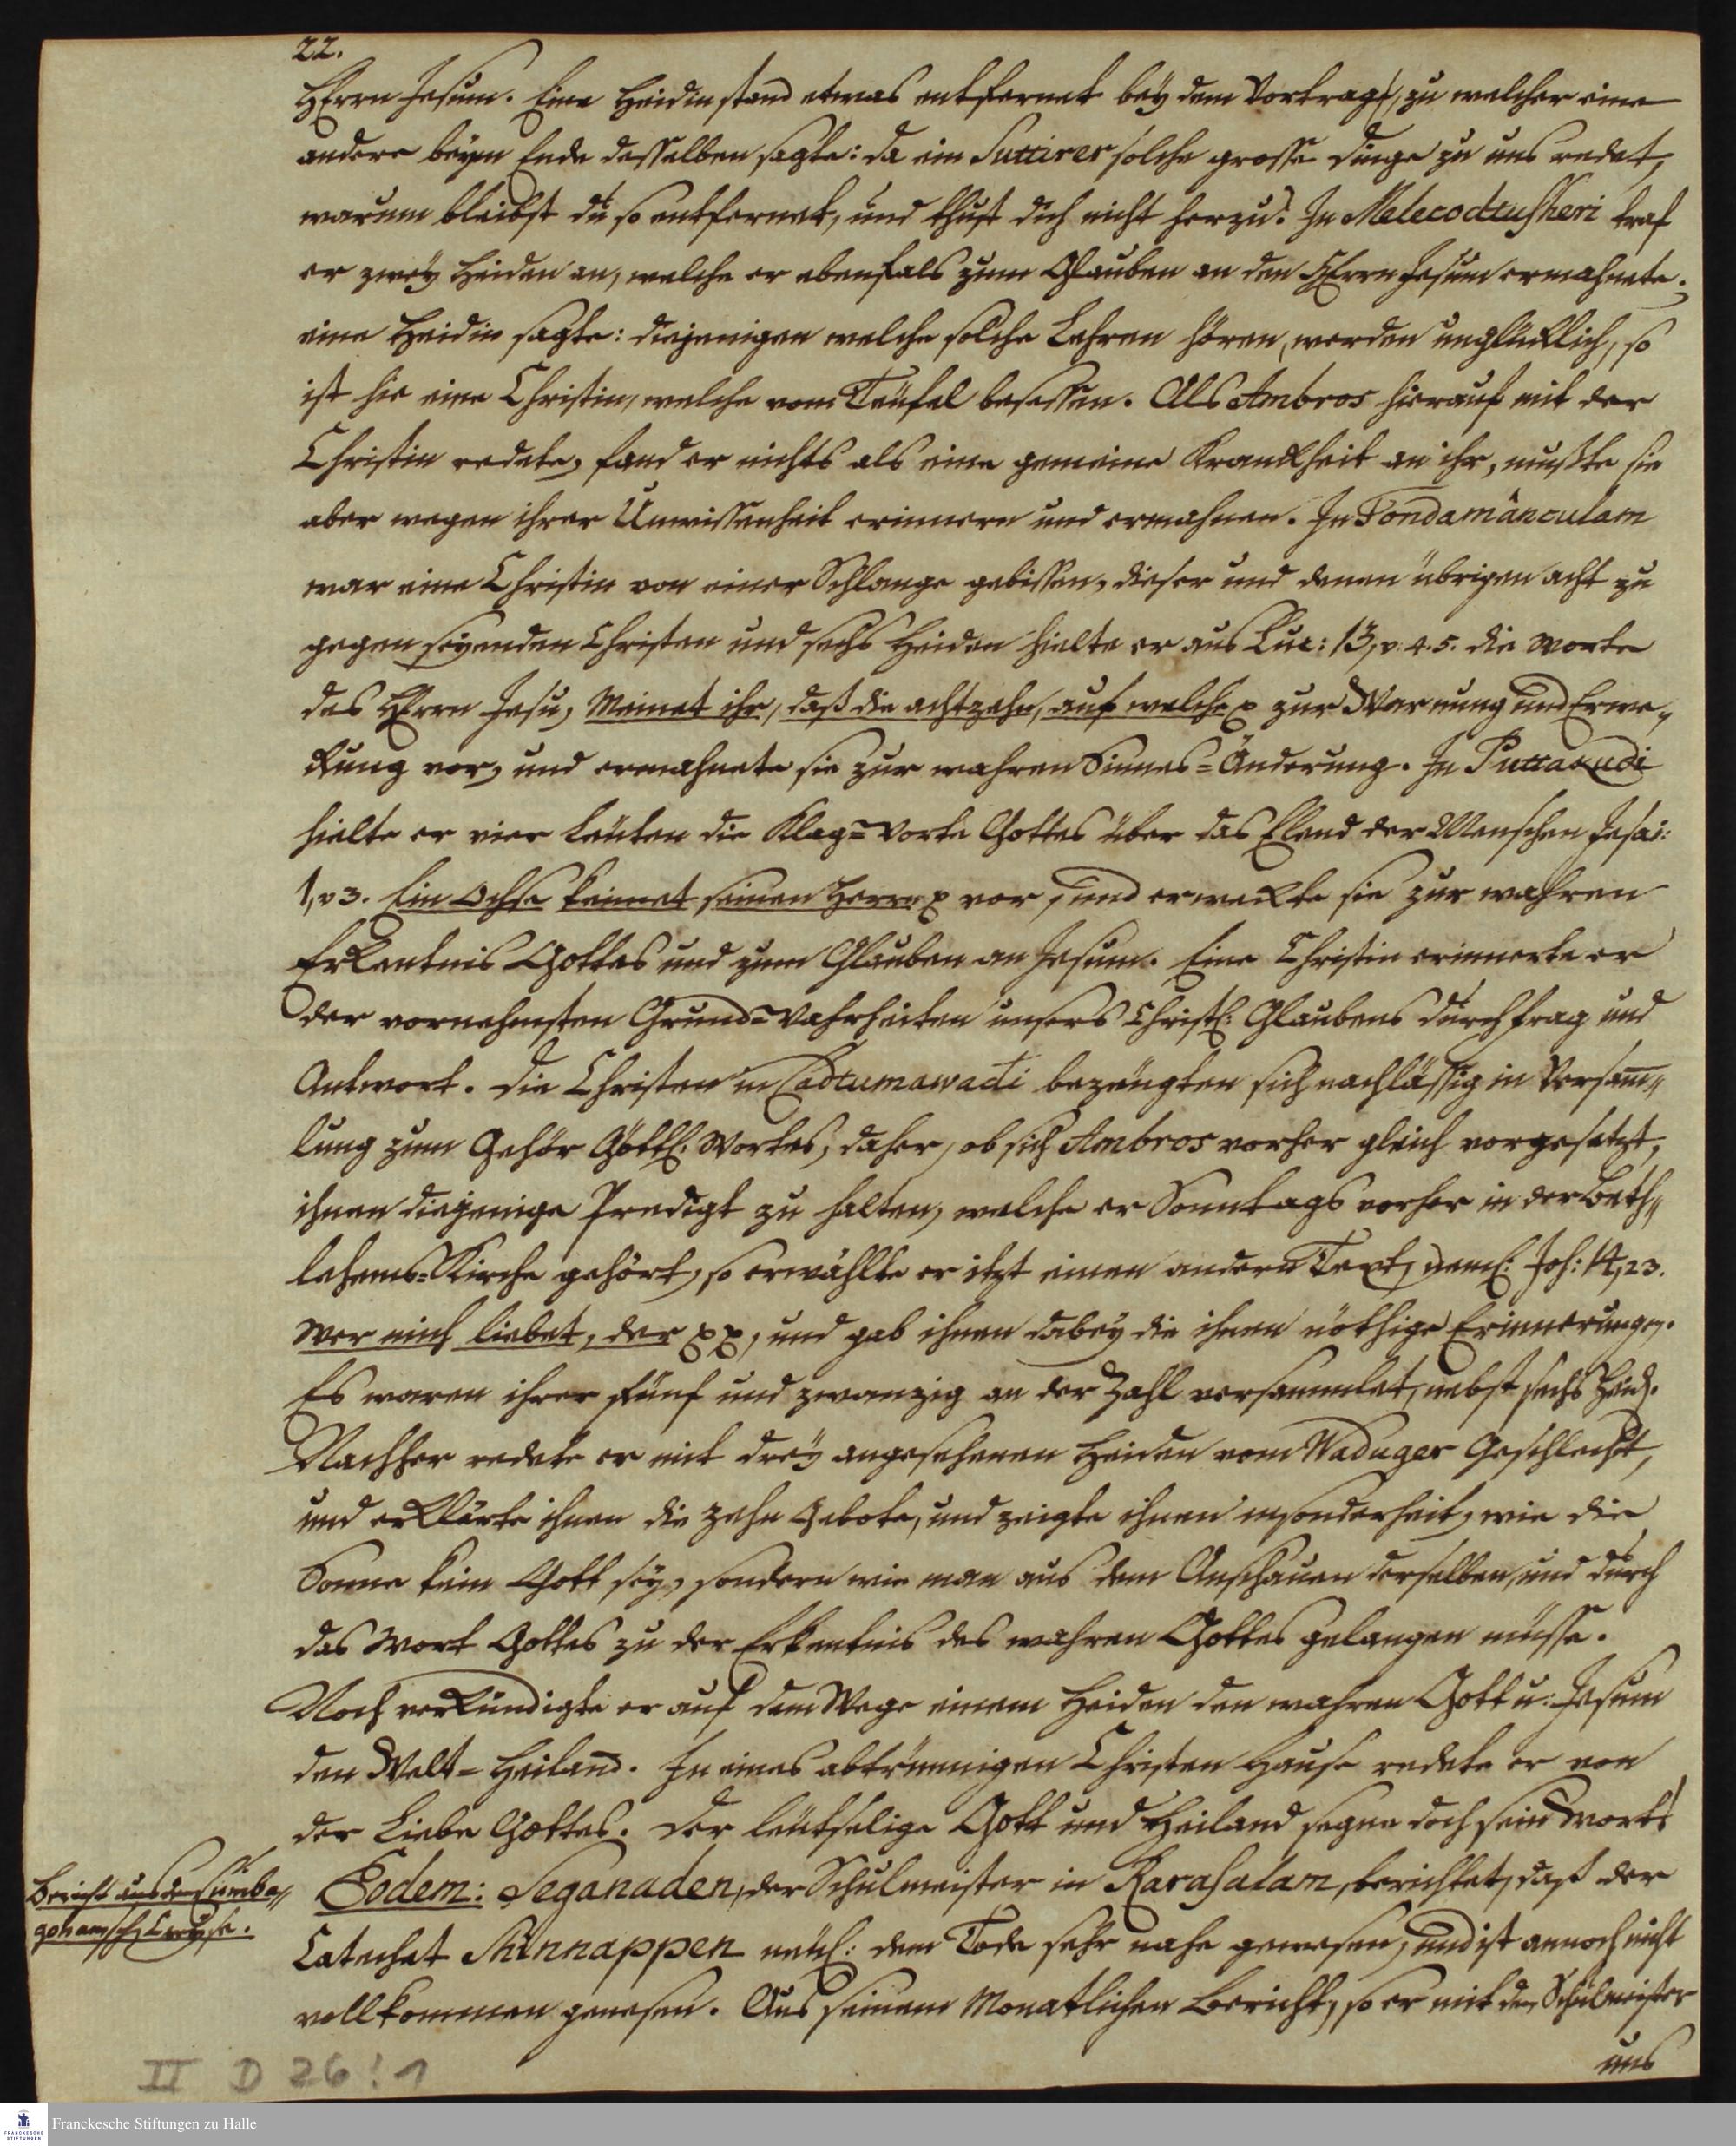 22.
HErrn Jesum. Eine Heidin stand etwas entfernet bey dem Vortrage, zu welcher eine
andere beym Ende desselben sagte: da ein Suttirer solche grosse Dinge zu uns redet,
warum bleibst du so entfernet, und thust dich nicht herzu? In Melecodtusheri traf
er zwey Heiden an, welche er ebenfals zum Glauben an den HErrn Jesum ermahnete.
eine Heidin sagte: diejenigen welche solche Lehren hören, werden unglücklich, so
ist hie eine Christin, welche vom Teüfel besessen. Als Ambros hierauf mit der
Christin redete, fand er nichts als eine gemeine Kranckheit an ihr, mußte sie
aber wegen ihrer Unwissenheit erinnern und ermahnen. In Tondamânculam
war eine Christin von einer Schlange gebissen, dieser und denen übrigen acht zu
gegen seyenden Christen und sechs Heiden hielte er aus Luc: 13, v. 4. 5. die Worte
des HErrn Jesu, Meinet ihr, daß die achtzehn, auf welche p zur Warnung und Erwe„
ckung vor, und ermahnete sie zur wahren Sinnes=Änderung. In Puttakudi
hielte er vier Leuten die Klag=Worte Gottes über das Elend der Menschen Jesai:
1, v 3. Ein Ochse kennet seinen Herrn p vor, und erweckte sie zur wahren
Erkentnis Gottes und zum Glauben an Jesum. Eine Christin erinnerte er
der vornehmsten Grund=Wahrheiten unsers Christl: Glaubens durch Frag und
Antwort. Die Christen in Cadtumawadi bezeugten sich nachlässig in Versam„
lung zum Gehör Göttl: Wortes, daher, ob sich Ambros vorher gleich vorgesetzt,
ihnen diejenige Predigt zu halten, welche er Sonntags vorher in der Beth„
lehems=Kirche gehört, so erwählte er itzt einen andern Text, neml: Joh: 14, 23.
Wer mich liebet, der pp, und gab ihnen dabey die ihnen nöthige Erinnerungen.
Es waren ihrer fünf und zwanzig an der Zahl versammlet, nebst sechs Heid.
Nachher redete er mit drey angesehenen Heiden vom Waduger Geschlecht,
und erklärte ihnen die zehn Gebote, und zeigte ihnen insonderheit, wie die
Sonne kein Gott sey, sondern wie man aus dem Anschauen derselben, und durch
das Wort Gottes zu der Erkentnis des wahren Gottes gelangen müsse.
Noch verkündigte er auf dem Wege einem Heiden den wahren Gott u: Jesum
den Welt=Heiland. In eines abtrünnigen Christen Hause redete er von
der Liebe Gottes. Der leutselige Gott und Heiland segne doch sein Wort!
Bericht aus dem Cumba„
gonamsch: Creyse.
Eodem: Seganaden, der Schulmeister in Rarasalam, berichtet, daß der
Catechet Shinnappen neul: dem Tode sehr nahe gewesen, und ist annoch nicht
vollkommen genesen. Aus seinem Monatlichen Bericht, so er mit dem Schulmeister
uns
II D 26:1
Franckesche Stiftungen zu Halle
FRANCKESCHE
STIFTUNGEN